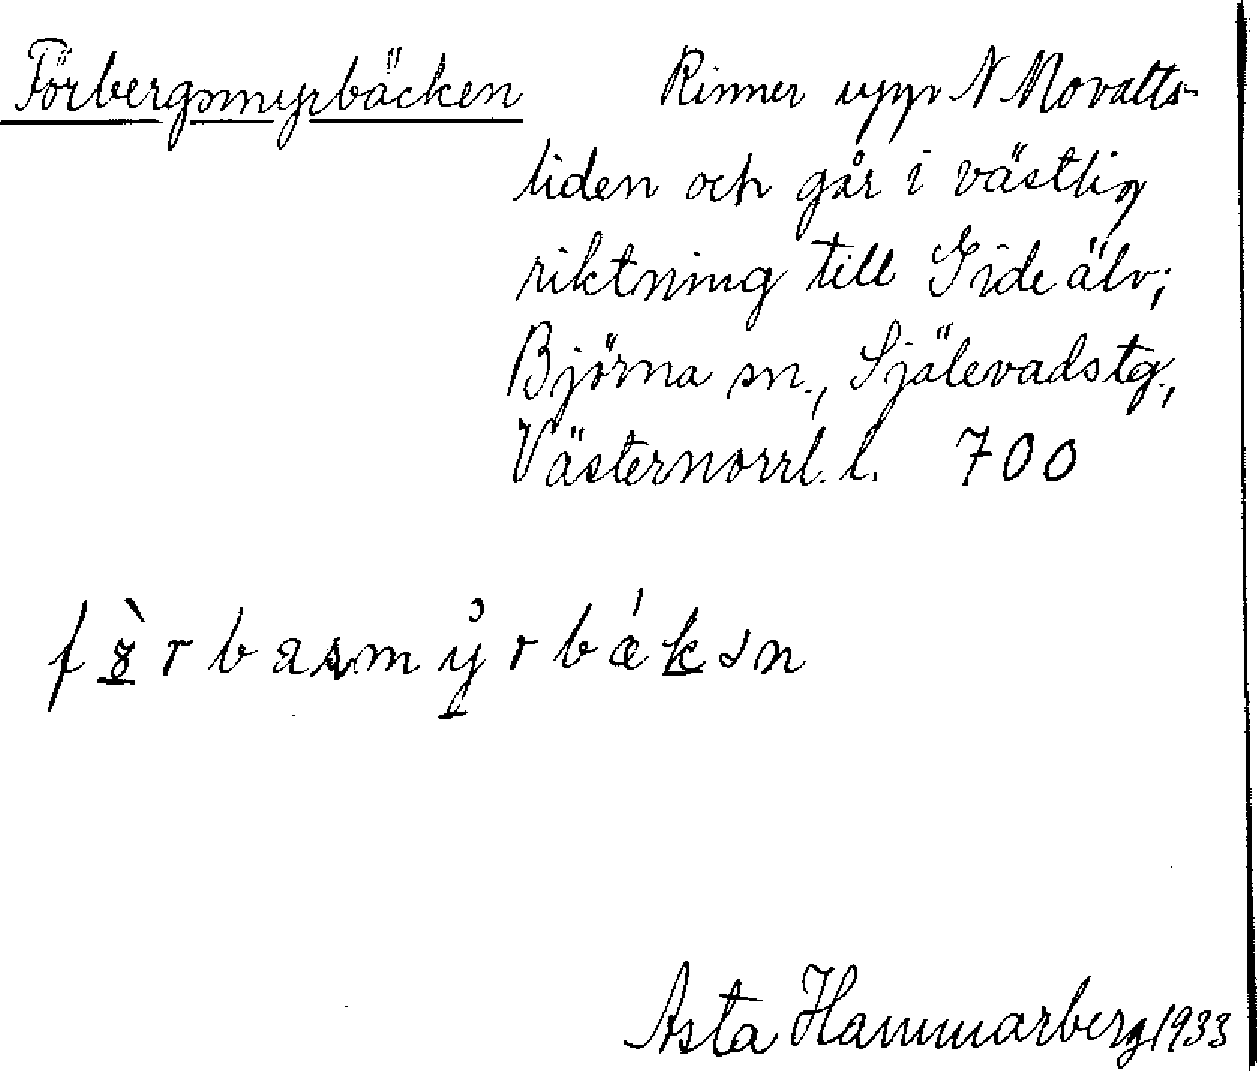 Förbergsmyrbäcken Rinner upp N Movatts-
liden och går i västlig
riktning till Gide älv;
Björna sn., Själevads tg.,
Västernorrl. l. 700
Asta Hammarberg 1933